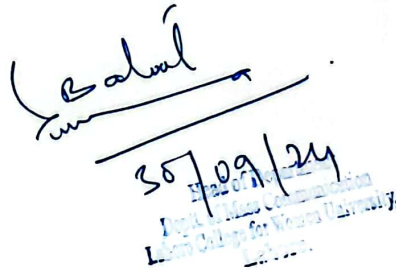 30/09/24
Head of Department
Deptt. of Mass Communication
Lahore College for Women University,
Lahore.